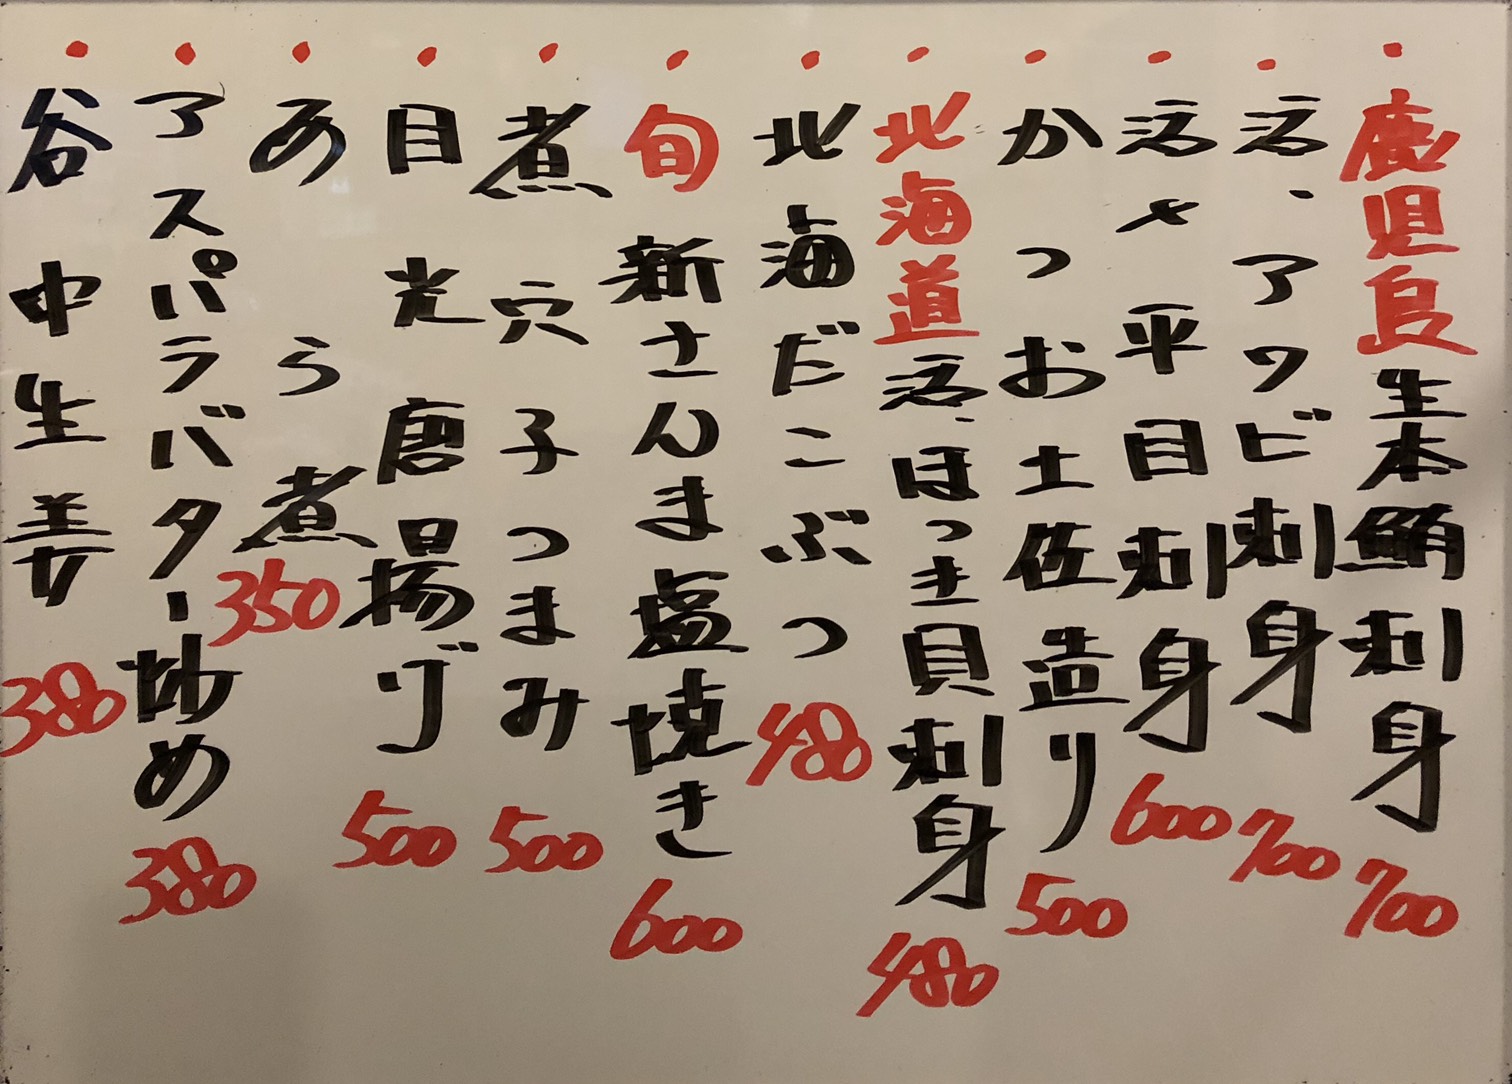 ・鹿児島生本鮪刺身 700
・活、アワビ刺身 700
・活〆平目刺身 600
・かつお土佐造り 500
・北海道活、ほっき貝刺身 480
・北海だこぶつ 480
・旬新さんま塩焼き 600
・煮穴子つまみ 500
・目光唐揚げ 500
・あら煮 350
・アスパラバター炒め 380
・谷中生姜 380